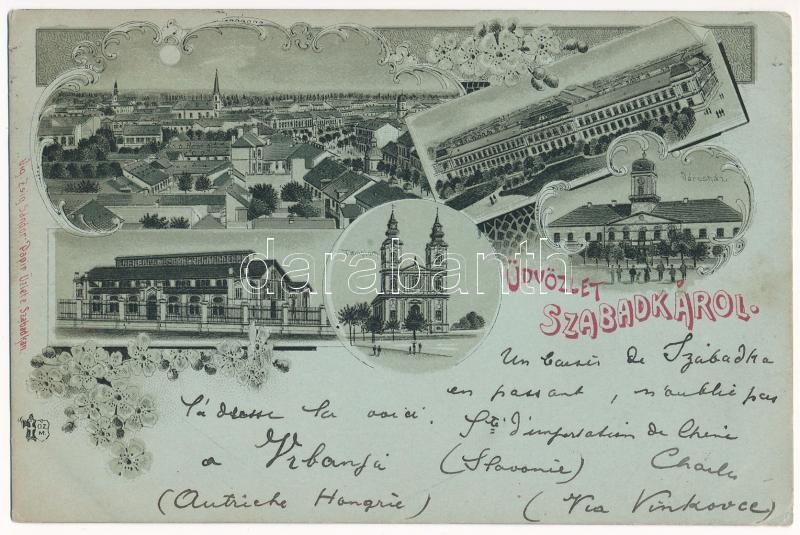 Városház
ÜDVÖZLET
SZABADKÁROL.
Un baiser de Szabadka
en passant, n'oublie pas
l'adresse la voici. Sté d'importation de Chêne
a Vrbanja (Slavonie) Charles
(Autriche Hongrie) (Via Vinkovce)
darabanth
Sándor, Papir Üzlete Szabadkán